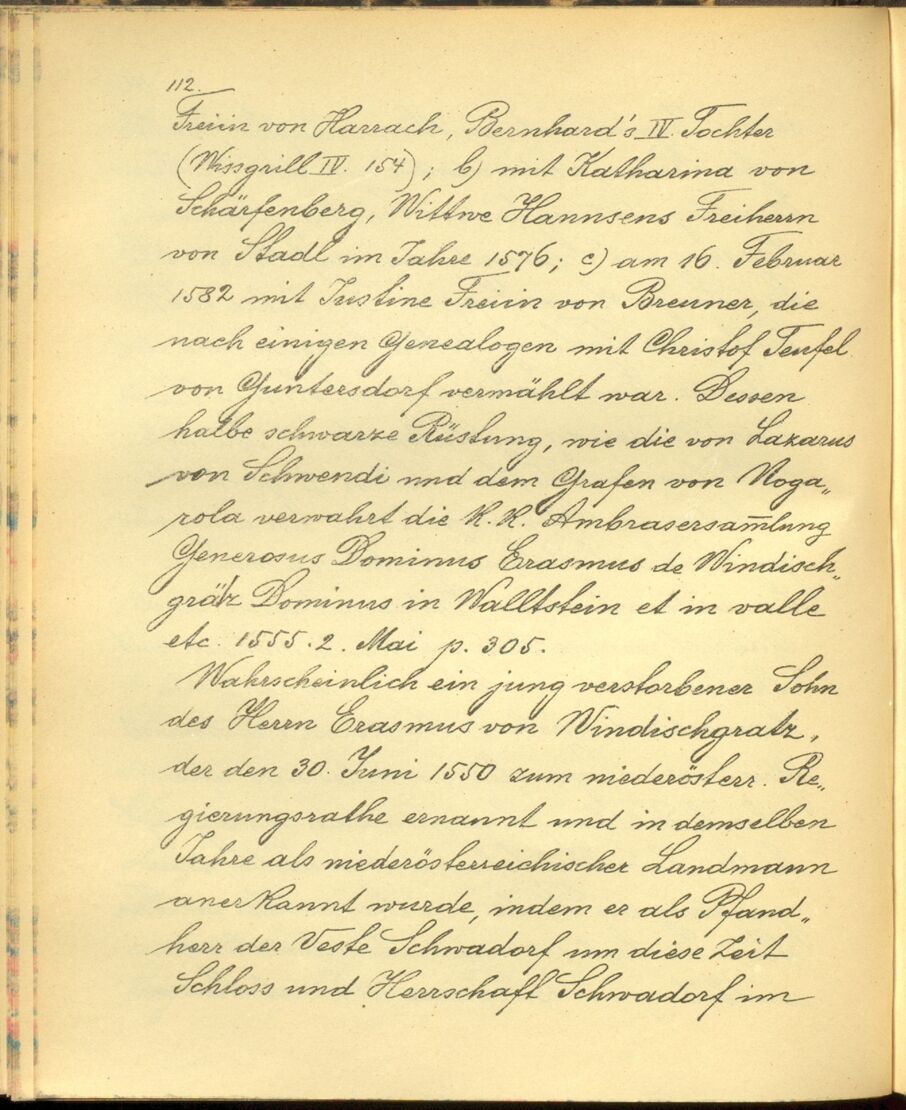 112.
Freiin von Harrach, Bernhard's IV. Tochter
(Wissgrill IV. 154); b) mit Katharina von
Schärfenberg, Wittwe Hannsens Freiherrn
von Stadl im Jahre 1576; c) am 16. Februar
1582 mit Justine Freiin von Breuner, die
nach einigen Genealogen mit Christof Teufel
von Guntersdorf vermählt war. Dessen
halbe schwarze Rüstung, wie die von Lazarus
von Schwendi und dem Grafen von Noga„
rola verwahrt die K. K. Ambrasersam̅lung
Generosus Dominus Erasmus de Windisch„
grätz Dominus in Walltstein et in valle
etc. 1555. 2. Mai p. 305.
Wahrscheinlich ein jung verstorbener Sohn
des Herrn Erasmus von Windischgratz,
der den 30. Juni 1550 zum niederösterr. Re„
gierungsrathe ernannt und in demselben
Jahre als niederösterreichischer Landmann
anerkannt wurde, indem er als Pfand„
herr der Veste Schwadorf um diese Zeit
Schloss und Herrschaft Schwadorf im